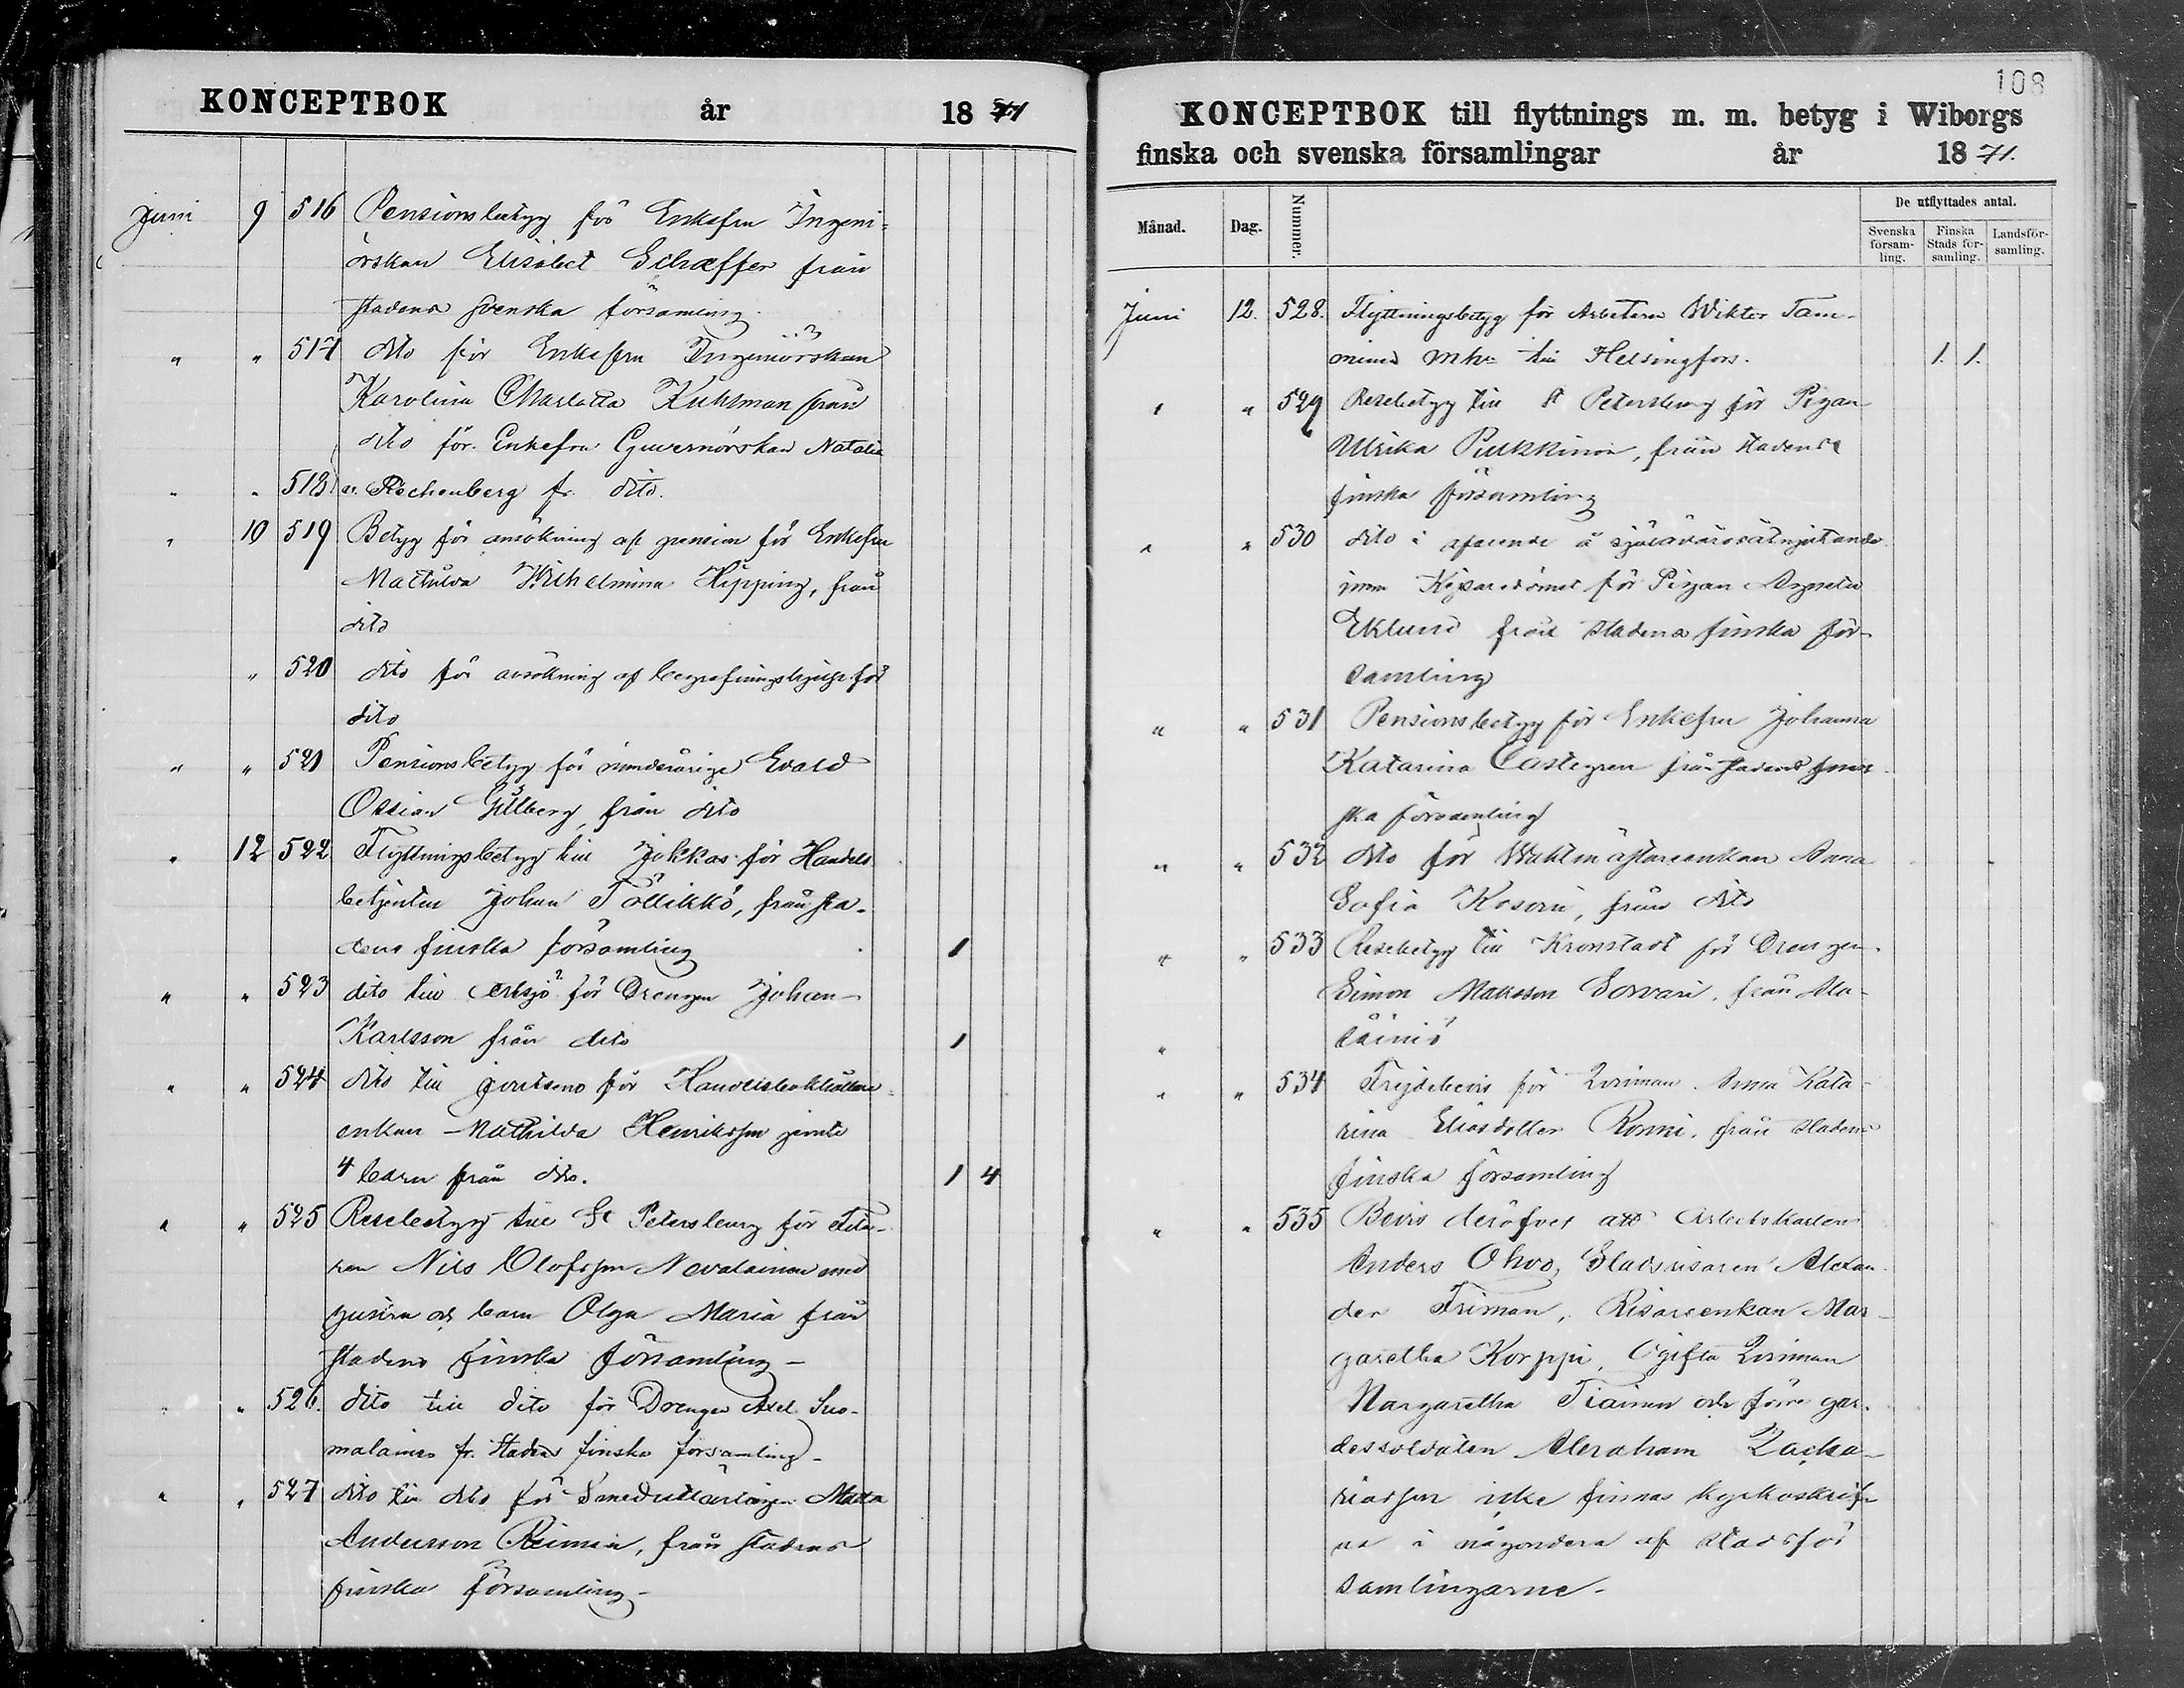 KONCEPTBOK år 1871
Juni 9 516 Pensionsbetyg för Enkefru Ingeni-
örskan Elisabet Schæffer från
stadens svenska församling.
" " 517 dito för Enkefru Ingeniörskan
Karolina Charlotta Kuhlman från
dito för Enkefru Guvernörskan Natalia
" " 518 v. Rechenberg fr. dito.
" 10 519 Betyg för ansökning af pension för Enkefru
Mathilda Wilhelmina Hipping, från
dito
" 520 dito för ansökning af begrafningshjelp för
dito
" " 521 Pensionsbetyg för minderårige Evald
Ossian Gillberg, från dito
" 12 522 Flyttningsbetyg till Jokkas för Handels
betjenten Johan Töllikkö, från sta-
dens finska församling 1
" " 523 dito till för Drengen Johan
Karlsson från dito 1
" " 524 dito till Joutseno för
enkan Mathilda Henriksson jemte
4 barn från dito. 1 4
" " 525 Resebetyg till St Petersburg för
Nils Olofsson Nevalainen med
hustru och barn Olga Maria från
stadens finska församling -
" " 526. dito till dito för Drengen Axel Suo-
malainen fr. stadens finska församling -
" " 527 dito till dito för Smeduttärlingen Matts
Andersson Reiman, från stadens
finska församling -
108
KONCEPTBOK till flyttnings m. m. betyg i Wiborgs
finska och svenska församlingar år 1871.
Månad. Dag. Nummer. De utflyttades antal.
Svenska försam-ling. Finska Stads för-samling. Landsför-samling.
Juni 12. 528. Flyttningsbetyg för Arbetaren Wiktor Tam-
minen m h till Helsingfors. 1. 1.
" " 529 Resebetyg till St Petersburg för Pigan
Ulrika Pukkinen, från stadens
finska församling
" " 530 dito i afseende å själavårdsåtnjutande
inom Kejsaredömet för Pigan Agneta
Eklund från stadens finska för-
samling
" " 531 Pensionsbetyg för Enkefru Johanna
Katarina Castegren från stadens
ska församling
" " 532 dito för Waktmästareenkan Anna
Sofia Kosoni, från dito
" " 533 Resebetyg till Kronstadt för Drengen
Simon Mattsson Sorvari, från
"
" " 534 Frejdebevis för Qvinnan Anna Kata-
rina Eliasdotter Ronni, från stadens
finska församling
" " 535 Bevis deröfver att Arbetskarlen
Anders Ohvo, Gladsrisaren Alexan-
der Friman, Risareenkan Mar-
garetha Korppi, Ogifta Qvinnan
Margaretha Tiainen och förre gar-
dessoldaten Abraham Zacha-
riasson icke finnas kyrkoskrif-
na i någondera af stadsför
samlingarne -